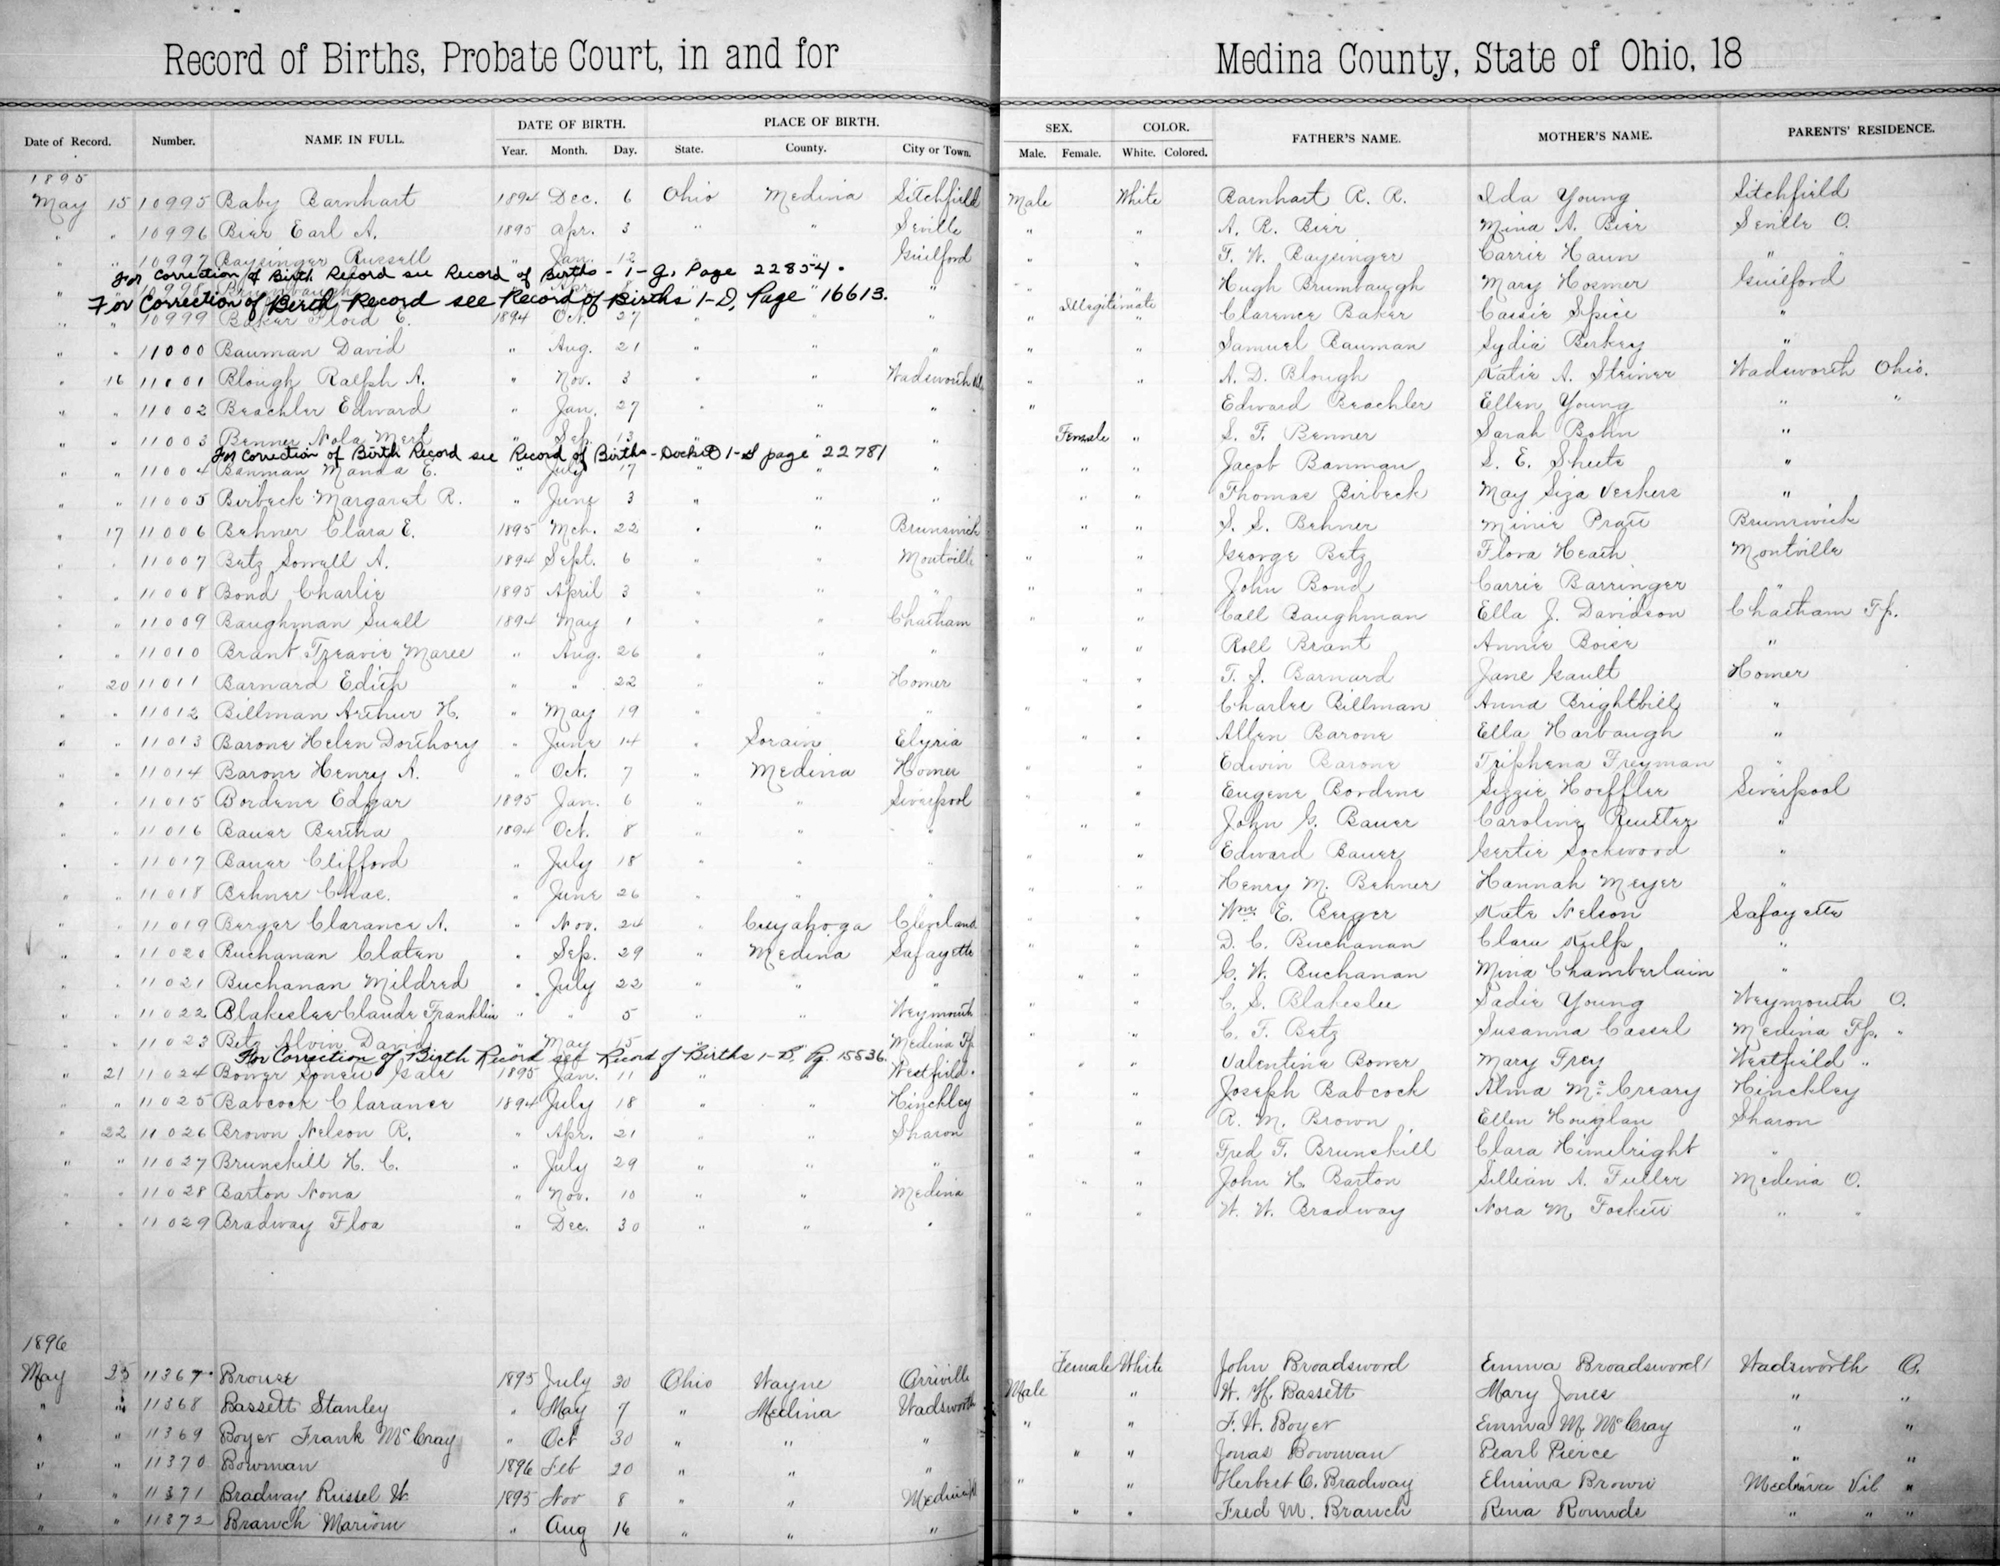 Record of Births, Probate Court, in and for Medina County, State of Ohio, 18
Date of Record. Number. NAME IN FULL. DATE OF BIRTH. PLACE OF BIRTH. SEX. COLOR. FATHER'S NAME. MOTHER'S NAME. PARENTS' RESIDENCE.
Year. Month. Day. State. County. City or Town. Male. Female. White. Colored.
1895
May 15 10995 Baby Barnhart 1894 Dec. 6 Ohio Medina Litchfield Male White Barnhart R. R. Ida Young Litchfield
" " 10996 Bier Earl A. 1895 Apr. 3 " " Seville " " A. R. Bier Mina A. Bier Seville O.
" " 10997 Baysinger Russell " Jan. 12 " " Guilford " " T. W. Baysinger Carrie Haun " "
For Correction of Birth Record see Record of Births - 1-G, Page 22854.
" " 10998 Brumbaugh " Apr. " " " " " Hugh Brumbaugh Mary Hosmer Guilford
For Correction of Birth Record see Record of Births 1-D, Page 16613.
" " 10999 Baker Floid E. 1894 Oct. 27 " " " " Illegitimate " Clarence Baker Cassie Spice "
" " 11000 Bauman David " Aug. 21 " " " " " Samuel Bauman Lydia Berkey "
" 16 11001 Blough Ralph A. " Nov. 3 " " Wadsworth " " A. D. Blough Katie A. Steiner Wadsworth Ohio.
" " 11002 Beachler Edward " Jan. 27 " " " " " Edward Beachler Ellen Young " "
" " 11003 Benner Nola Merl " Sep. 13 " " " Female " S. F. Benner Sarah Bohn "
For Correction of Birth Record see Record of Births - Docket 1-G page 22781
" " 11004 Banman Manda E. " July 17 " " " " " Jacob Banman S. E. Sheets "
" " 11005 Birbeck Margaret R. " June 3 " " " " " Thomas Birbeck May Liza "
" 17 11006 Behner Clara E. 1895 Mch. 22 " " Brunswick " " S. S. Behner Minie Brunswick
" " 11007 Betz Lowell A. 1894 Sept. 6 " " Montville " " George Betz Flora Heath Montville
" " 11008 Bond Charlie 1895 April 3 " " " " " John Bond Carrie Barringer "
" " 11009 Baughman Suell 1894 May 1 " " Chatham " " Call Baughman Ella J. Davidson Chatham Tp.
" " 11010 Brant Treavie Maree " Aug. 26 " " " " " Roll Brant Annie Boise "
" 20 11011 Barnard Edith " " 22 " " Homer " " T. S. Barnard Jane Gault Homer
" " 11012 Billman Arthur H. " May 19 " " " " " Charles Billman Anna Brightbill "
" " 11013 Barone Helen Dorthory " June 14 " Lorain Elyria " " Allen Barone Ella Harbaugh "
" " 11014 Barone Henry A. " Oct. 7 " Medina Homer " " Edwin Barone Triphena Freyman "
" " 11015 Bordene Edgar 1895 Jan. 6 " " Liverpool " " Eugene Bordene Lizzie Hoeffler Liverpool
" " 11016 Bauer Bertha 1894 Oct. 8 " " " " " John G. Bauer Caroline Reutter "
" " 11017 Bauer Clifford " July 18 " " " " " Edward Bauer Gertie Lockwood "
" " 11018 Behner Chas. " June 26 " " " " " Henry M. Behner Hannah Meyer "
" " 11019 Berger Clarance A. " Nov. 24 " Cuyahoga Cleveland " " Wm. E. Berger Kate Nelson Lafayette
" " 11020 Buchanan Claten " Sep. 29 " Medina Lafayette " " D. C. Buchanan Clara Kulp "
" " 11021 Buchanan Mildred " July 22 " " " " " C. W. Buchanan Mina Chamberlain "
" " 11022 Blakeslee Claude Franklin " " 5 " " Weymouth " " C. S. Blakeslee Sadie Young Weymouth O.
" " 11023 Betz Alvin David " May 15 " " Medina Tp. " " C. F. Betz Susanna Cassel Medina Tp. "
For Correction of Birth Record see Record of Births 1-B, Pg. 15536.
" 21 11024 Bower Gale 1895 Jan. 11 " " Westfield. " " Valentine Bower Mary Frey Westfield "
" " 11025 Babcock Clarance 1894 July 18 " " Hinckley " " Joseph Babcock Alma McCreary Hinckley
" 22 11026 Brown Nelson R. " Apr. 21 " " Sharon " " R. M. Brown Ellen Houglan Sharon
" " 11027 Brunskill H. C. " July 29 " " " " " Fred T. Brunskill Clara Himelright "
" " 11028 Barton Nona " Nov. 10 " " Medina " " John H. Barton Lillian A. Fuller Medina O.
" " 11029 Bradway Floa " Dec. 30 " " " " " W. W. Bradway Nora M. " "
1896
May 25 11367 Brouse 1895 July 30 Ohio Wayne Orrville Female White John Broadsword Emma Broadsword Wadsworth O.
" " 11368 Bassett Stanley " May 7 " Medina Wadsworth Male " W. H. Bassett Mary Jones " "
" " 11369 Boyer Frank McCray " Oct 30 " " " " " F. W. Boyer Emma M. McCray " "
" " 11370 Bowman 1896 Feb 20 " " " " " Jonas Bowman Pearl Pierce " "
" " 11371 Bradway Russel W. 1895 Nov 8 " " Medina " " Herbert C. Bradway Elmina Brown Medina Vil "
" " 11372 Branch Marion " Aug 16 " " " " " Fred M. Branch Rena Rounds " " "